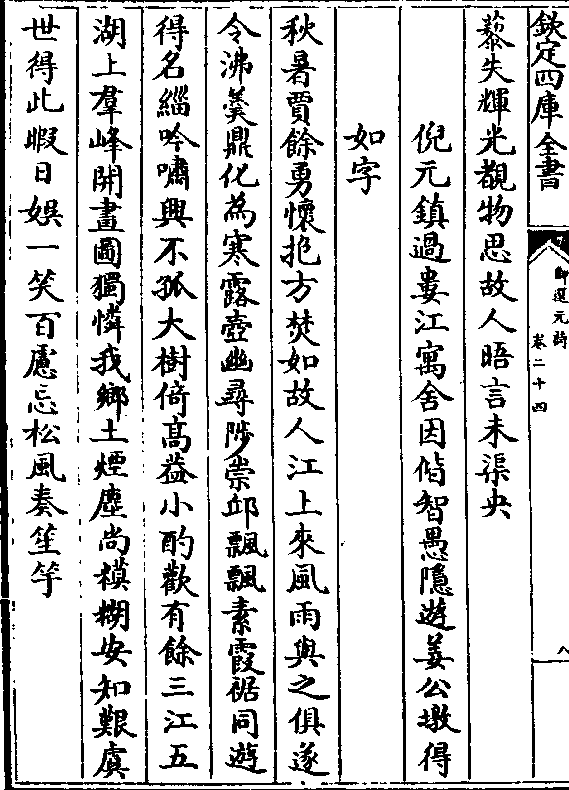 欽定四庫全書
御選元詩
卷二十四
八
藜失輝光覩物思故人晤言未渠央
倪元鎮過婁江寓舍因偕智愚隱遊姜公墩得
如字
秋暑賈餘勇懷抱方焚如故人江上來風雨與之俱遂
令沸羮鼎化為寒露壺幽尋陟崇邱飄飄素霞裾同遊
得名緇吟嘯興不孤大樹倚髙葢小酌歡有餘三江五
湖上羣峰開畫圖獨憐我鄉土煙塵尚模糊安知艱虞
世得此暇日娛一笑百慮忘松風奏笙竽